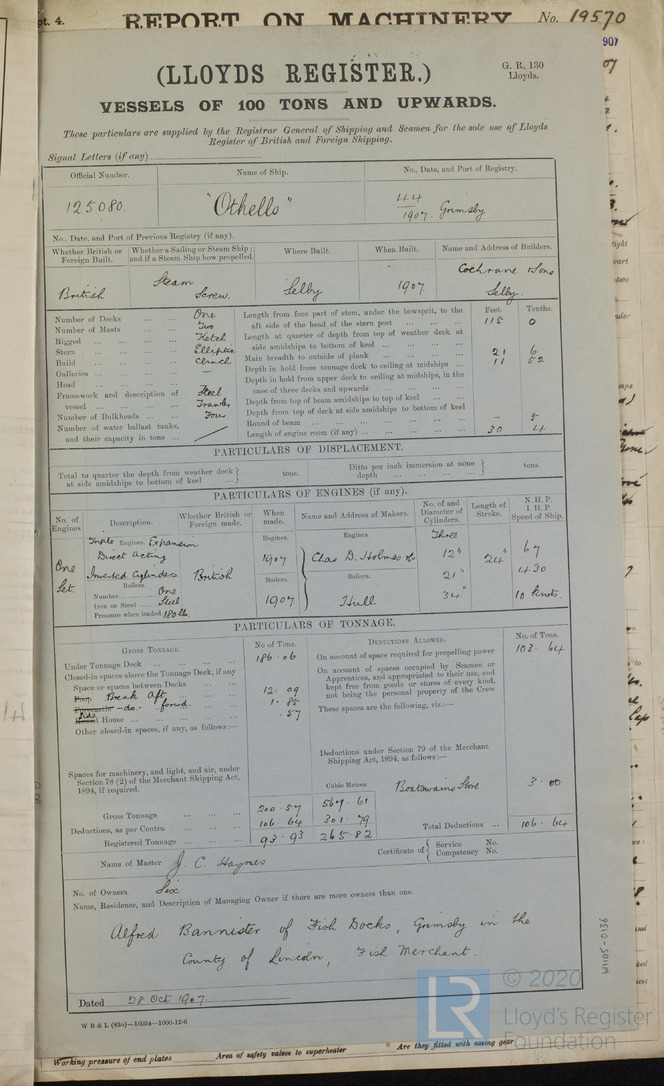 pt. 4. REPORT ON MACHINERY No. 19570
907
(LLOYDS REGISTER.)
G. R. 130
Lloyds.
VESSELS OF 100 TONS AND UPWARDS.
These particulars are supplied by the Registrar General of Shipping and Seamen for the sole use of Lloyds
Register of British and Foreign Shipping.
Signal Letters (if any)
Official Number. Name of Ship. No., Date, and Port of Registry.
125080. "Othello" 44/1907. Grimsby
No., Date, and Port of Previous Registry (if any).
Whether British or Foreign Built. Whether a Sailing or Steam Ship; and if a Steam Ship how propelled. Where Built. When Built. Name and Address of Builders.
British Steam Screw. Selby 1907 Cochrane & Sons Selby.
Number of Decks ... ... One
Number of Masts ... ... Two
Rigged ... ... ... Ketch
Stern ... ... ... Elliptic
Build ... ... ... Clench
Galleries ... ... ... —
Head ... ... ...
Framework and description of vessel ... ... ... Steel Trawler
Number of Bulkheads ... Four
Number of water ballast tanks, and their capacity in tons ...
Feet. Tenths.
Length from fore part of stem, under the bowsprit, to the aft side of the head of the stern post ... ... ... 115 0
Length at quarter of depth from top of weather deck at side amidships to bottom of keel ... ... ...
Main breadth to outside of plank ... ... ... 21 6
Depth in hold from tonnage deck to ceiling at midships ... 11 52
Depth in hold from upper deck to ceiling at midships, in the case of three decks and upwards ... ... ...
Depth from top of beam amidships to top of keel ... ...
Depth from top of deck at side amidships to bottom of keel
Round of beam ... ... ... — 5
Length of engine room (if any) ... ... ... 30 4
PARTICULARS OF DISPLACEMENT.
Total to quarter the depth from weather deck at side amidships to bottom of keel ... } tons. Ditto per inch immersion at same depth ... } tons
PARTICULARS OF ENGINES (if any).
No. of Engines. Description. Whether British or Foreign made. When made. Name and Address of Makers. No. of and Diameter of Cylinders. Length of Stroke. N. H. P. I. H. P. Speed of Ship.
One Set. Triple Engines. Expansion
Direct Acting
Inverted Cylinders
British
Engines. 1907
Boilers. 1907
Engines Chas D. Holmes & Co
Boilers. Hull
Three 12" 21" 34"
24"
67
430
10 Knots.
Boilers.
Number One
Iron or Steel Steel
Pressure when loaded 180 lb.
PARTICULARS OF TONNAGE.
GROSS TONNAGE. No of Tons.
Under Tonnage Deck ... 186.06
Closed-in spaces above the Tonnage Deck, if any
Space or spaces between Decks
Poop Break Aft 12.09
Forecastle -do- forwd. 1.85
Round Side House ... .57
Other closed-in spaces, if any, as follows:—
Spaces for machinery, and light, and air, under Section 78 (2) of the Merchant Shipping Act, 1894, if required.
Cubic Metres
Gross Tonnage ... 200.57 567.61
Deductions, as per Contra ... 106.64 301.79
Registered Tonnage ... 93.93 265.82
DEDUCTIONS ALLOWED. No. of Tons.
On account of space required for propelling power 103.64
On account of spaces occupied by Seamen or Apprentices, and appropriated to their use, and kept free from goods or stores of every kind, not being the personal property of the Crew
These spaces are the following, viz.:—
Deductions under Section 79 of the Merchant Shipping Act, 1894, as follows:—
Boatswains Store 3.00
Total Deductions ... 106.64
Name of Master J. C. Haynes
Certificate of { Service No. Competency No.
No. of Owners Six
Name, Residence, and Description of Managing Owner if there are more owners than one.
Alfred Bannister of Fish Docks, Grimsby in the
County of Lincoln, Fish Merchant.
Dated 28 Oct 1907
W B & L (83o)—10334—1000-12-6
W1105-0136
© 2020
LR
Lloyd's Register
Foundation
Working pressure of end plates Area of safety valves to superheater Are they fitted with easing gear